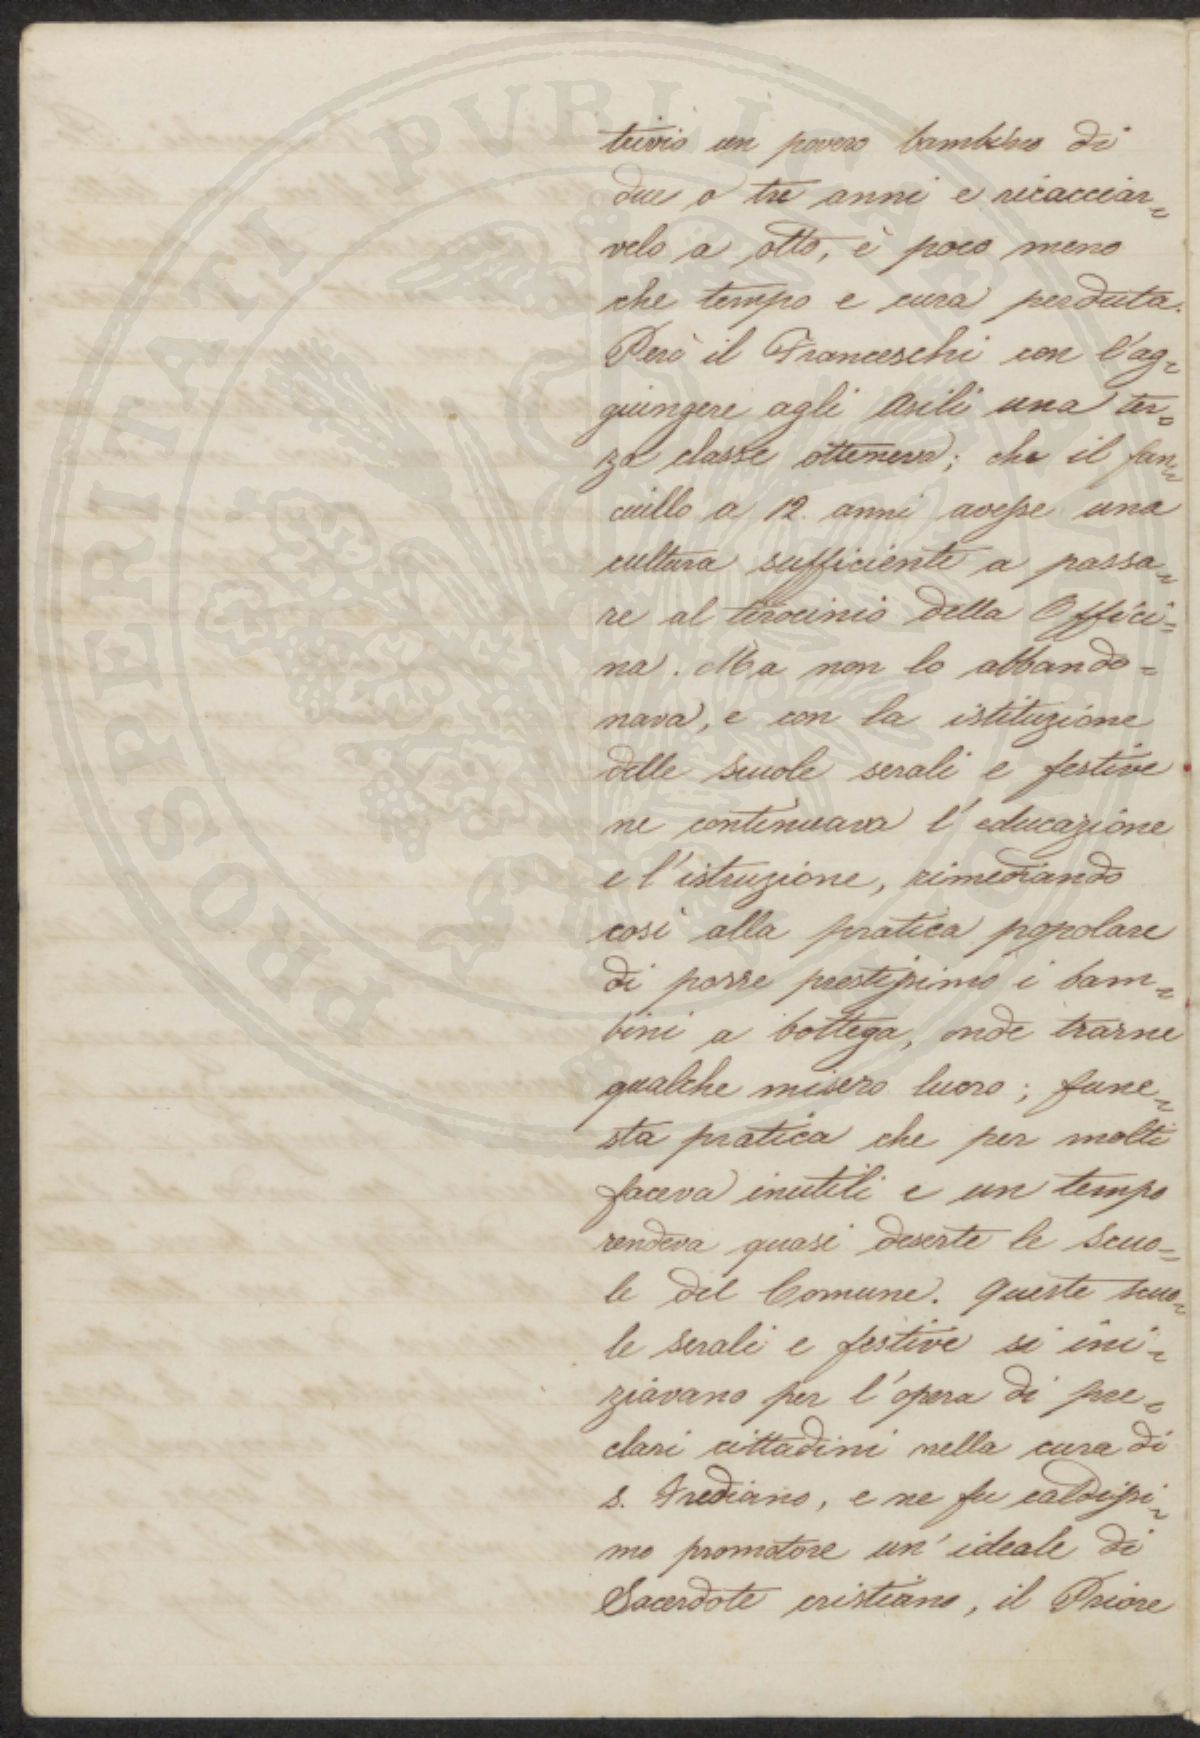 trivio un povero bambino di
due o tre anni e ricacciar=
velo a otto, è poco meno
che tempo e cura perduta.
Però il Franceschi con l'ag=
giungere agli Asili una ter=
za classe otteneva; che il fan=
ciullo a 12. anni avesse una
cultura sufficiente a passa=
re al tirocinio della Offici=
na. Ma non lo abbando=
nava, e con la istituzione
delle Scuole serali e festive
ne continuava l'educazione
e l'istruzione, rimediando
così alla pratica popolare
di porre prestissimo i bam=
bini a bottega, onde trarne
qualche misero lucro; fune=
sta pratica che per molti
faceva inutili e un tempo
rendeva quasi deserte le Scuo=
le del Comune. Queste scuo=
le serali e festive si ini=
ziavano per l'opera di pre=
clari cittadini nella cura di
S. Frediano, e ne fu caldissi=
mo promotore un'ideale di
Sacerdote cristiano, il Priore
PROSPERITATI PUBLICAE